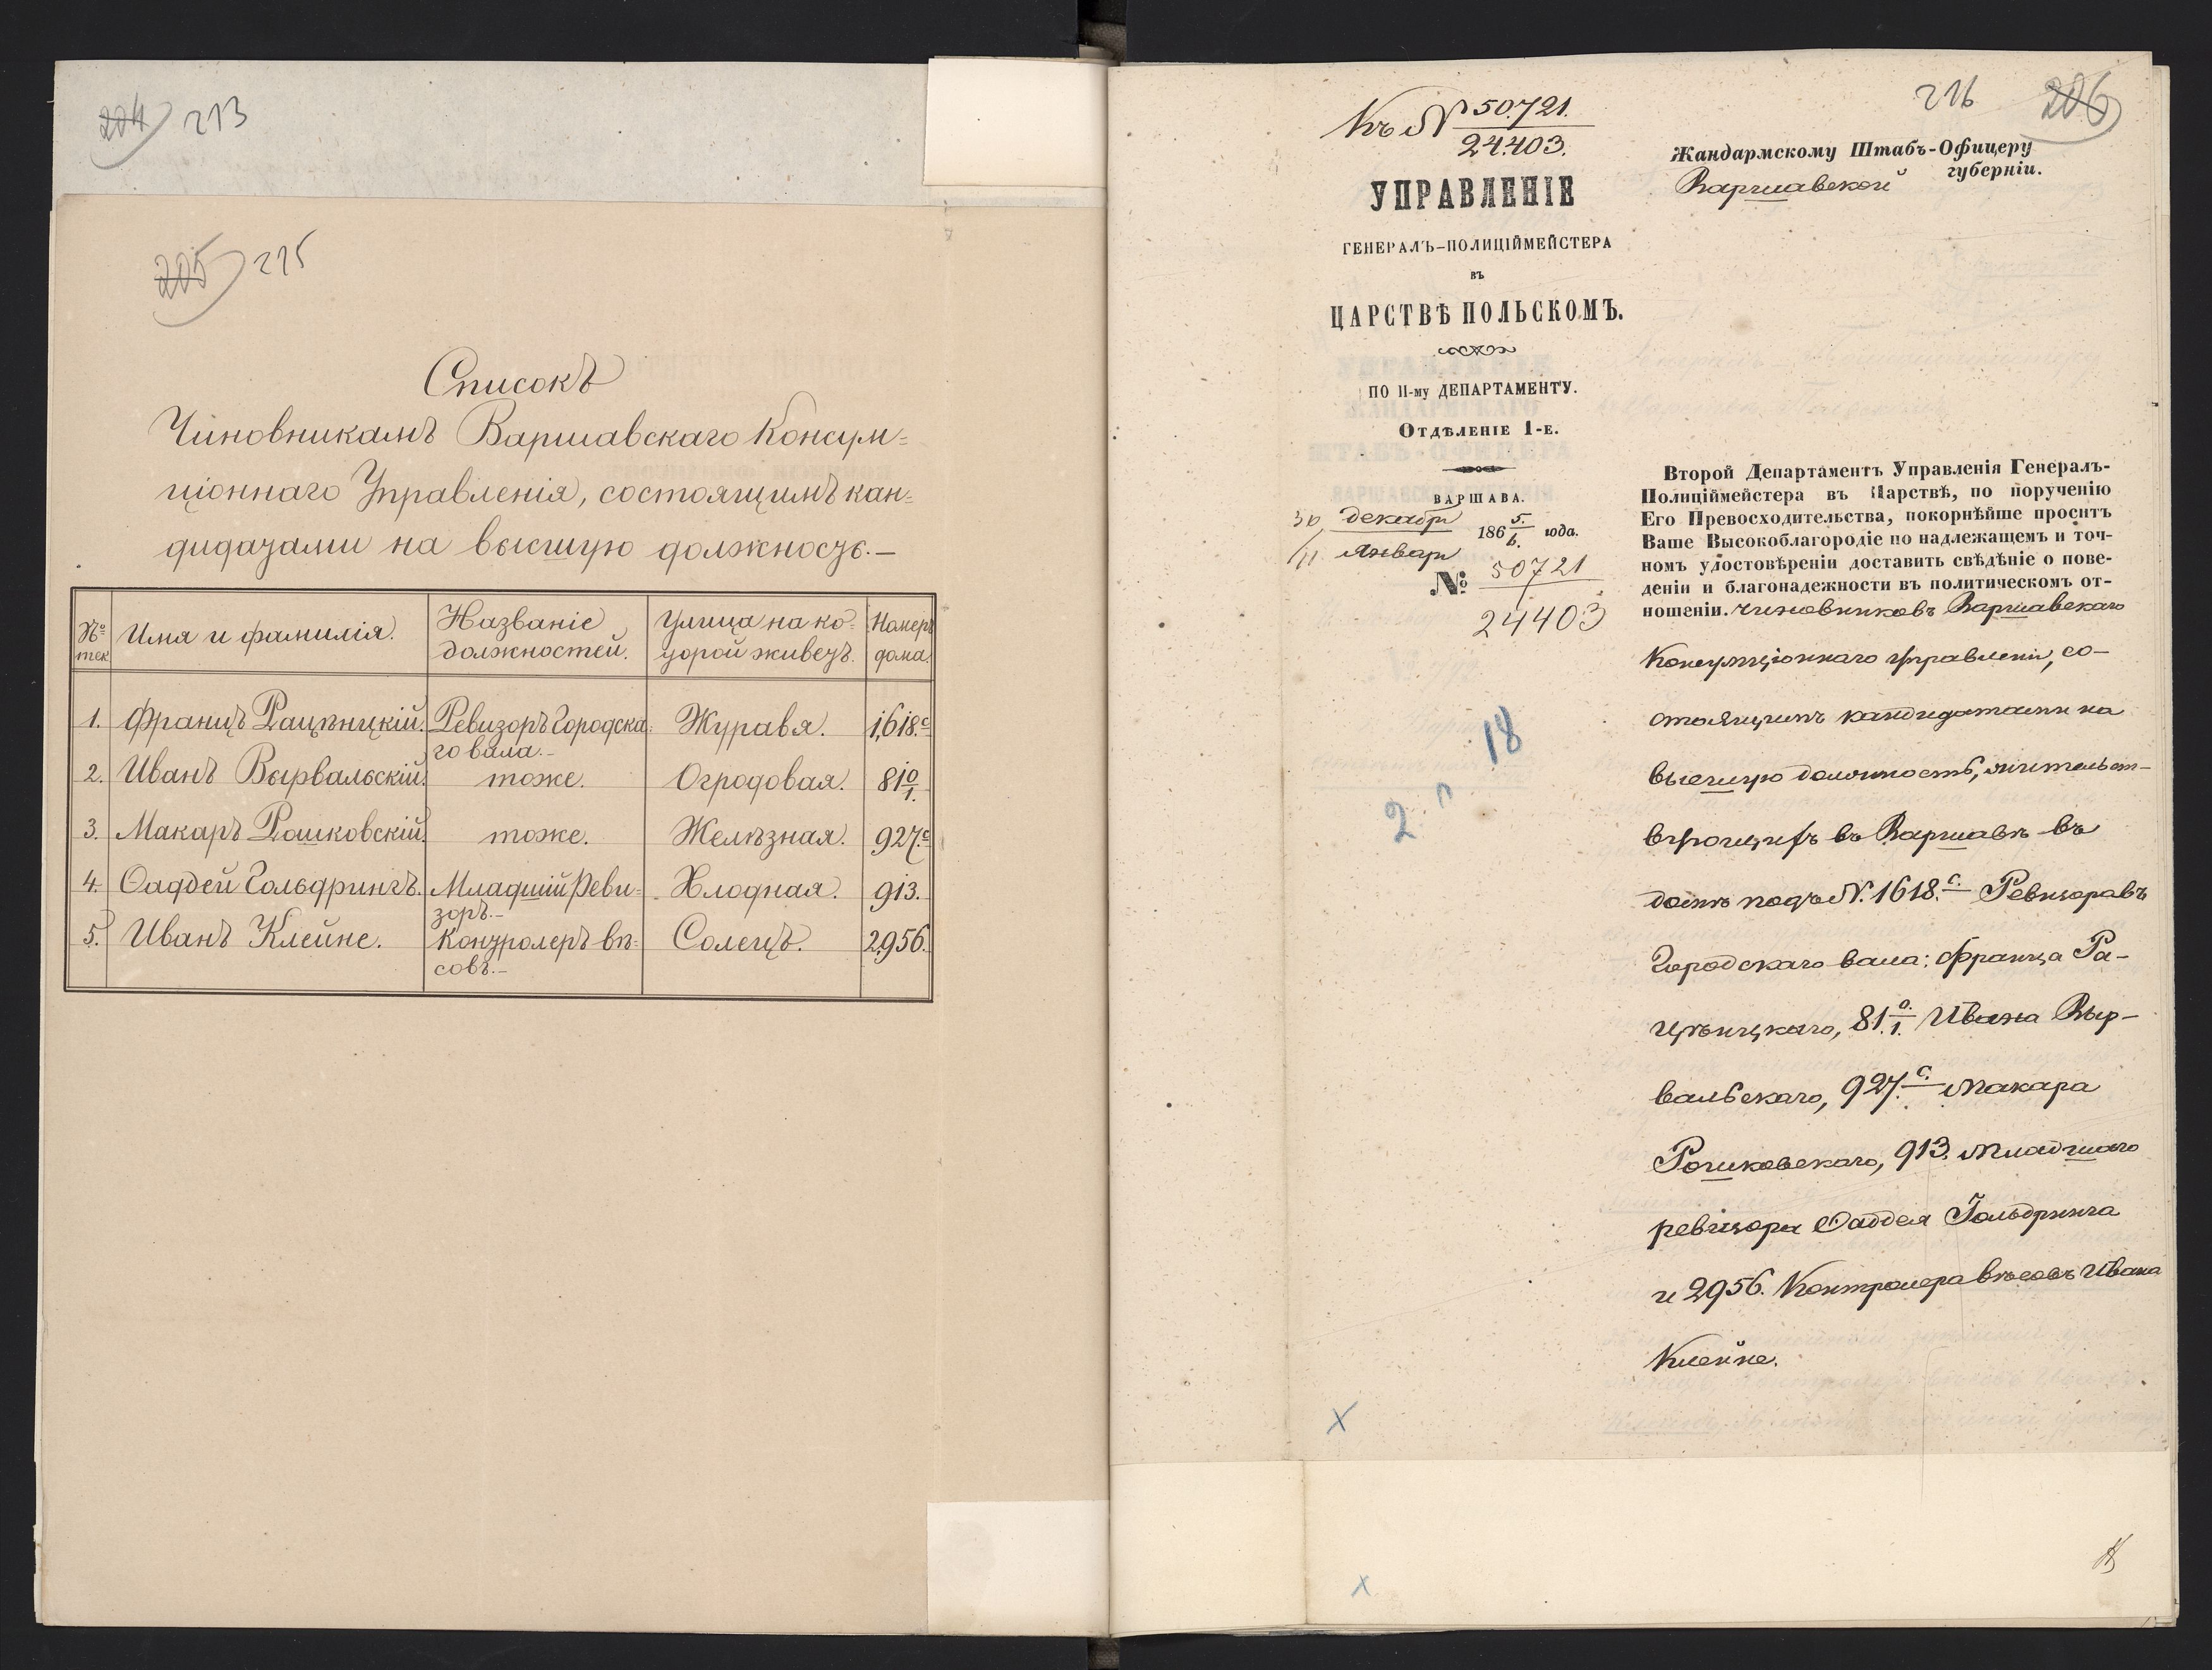 204 213
205 215
Списокъ
Чиновникамъ Варшавскаго Консум=
ціоннаго Управленія, состоящимъ кан=
дидатами на высшую должность.—
№ тек
Имя и фамилія.
Названіе должностей.
Улица на которой живетъ.
Номеръ дома.
1. Францъ Рацѣницкій. Ревизоръ Городска= Журавя. 1,618.c
го вала.—
2. Иванъ Вырвальскій. тоже. Огродовая. 81 0/1.
3. Макаръ Рошковскій. тоже. Желѣзная. 927.c
4. Ѳаддей Гольдрингъ. Младшій Реви= Хлодная. 913.
зоръ.—
5. Иванъ Клейне. Контролеръ вѣ= Солецъ. 2,956.
совъ.—
216 206
Къ № 50.721.
24.403.
УПРАВЛЕНІЕ
ГЕНЕРАЛЪ-ПОЛИЦІЙМЕЙСТЕРА
ВЪ
ЦАРСТВѢ ПОЛЬСКОМЪ.
ПО II-му ДЕПАРТАМЕНТУ.
ОТДѢЛЕНІЕ 1-Е.
ВАРШАВА.
30 декабря
11 Января
186 5./6. года.
№ 50721
24403
18
2
Жандармскому Штабъ-Офицеру
Варшавской губерніи.
Второй Департаментъ Управленія Генералъ-
Полиціймейстера въ Царствѣ, по порученію
Его Превосходительства, покорнѣйше проситъ
Ваше Высокоблагородіе по надлежащемъ и точ-
номъ удостовѣреніи доставить свѣдѣніе о пове-
деніи и благонадежности въ политическомъ от-
ношеніи. чиновниковъ Варшавскаго
Консумціоннаго Управленія, со-
стоящихъ кандидатами на
высшую должность, жительст-
вующихъ въ Варшавѣ въ
домѣ подъ № 1618.c Ревизоровъ
Городскаго вала: Франца Ра-
цѣницкаго, 81 0/1. Ивана Выр-
вальскаго, 927.c Макара
Рошковскаго, 913. младшаго
ревизора Ѳаддея Гольдринга
и 2956. Контролера вѣсовъ Ивана
Клейне.